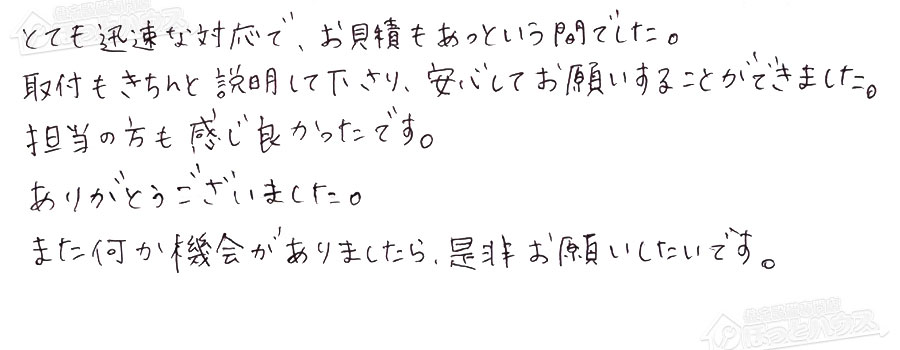 とても迅速な対応で、お見積もあっという間でした。
取付もきちんと説明して下さり、安心してお願いすることができました。
担当の方も感じ良かったです。
ありがとうございました。
また何か機会がありましたら、是非お願いしたいです。
ほっとハウス